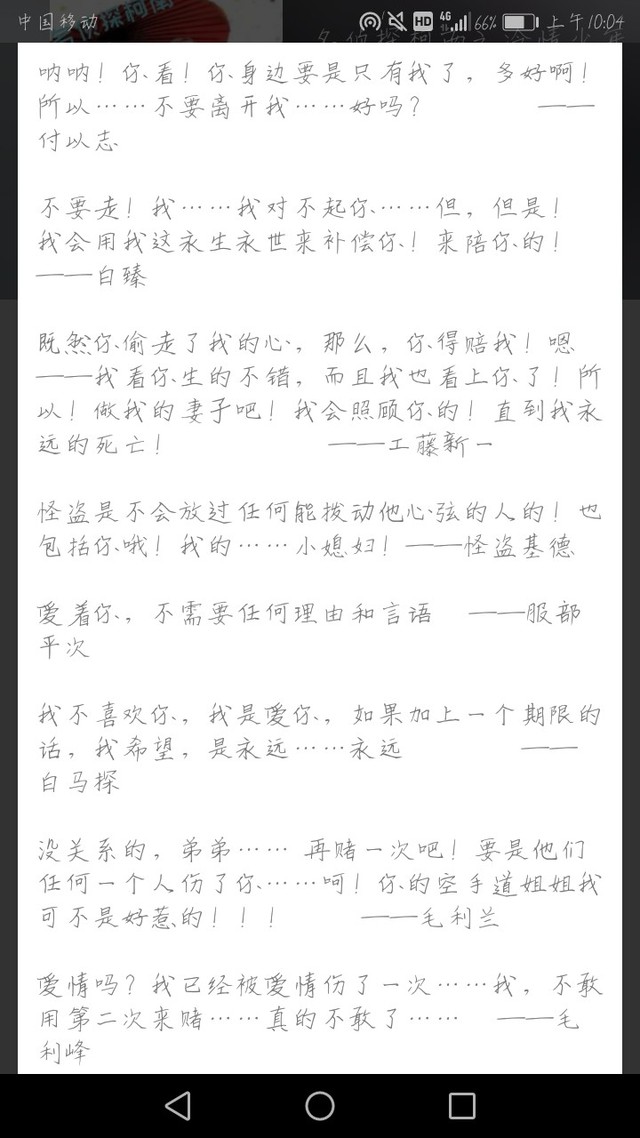 中国移动 HD 4G 66% 上午10:04
呐呐！你看！你身边要是只有我了，多好啊！
所以……不要离开我……好吗？ ——
付以志
不要走！我……我对不起你……但，但是！
我会用我这永生永世来补偿你！来陪你的！
——白臻
既然你偷走了我的心，那么，你得赔我！嗯
——我看你生的不错，而且我也看上你了！所
以！做我的妻子吧！我会照顾你的！直到我永
远的死亡！ ——工藤新一
怪盗是不会放过任何能拨动他心弦的人的！也
包括你哦！我的……小媳妇！——怪盗基德
爱着你，不需要任何理由和言语 ——服部
平次
我不喜欢你，我是爱你，如果加上一个期限的
话，我希望，是永远……永远 ——
白马探
没关系的，弟弟…… 再赌一次吧！要是他们
任何一个人伤了你……呵！你的空手道姐姐我
可不是好惹的！！！ ——毛利兰
爱情吗？我已经被爱情伤了一次……我，不敢
用第二次来赌……真的不敢了…… ——毛
利峰